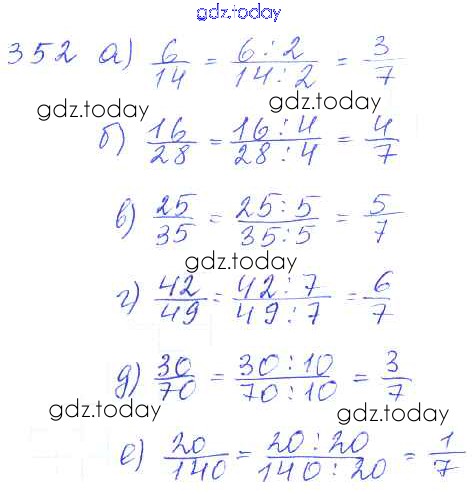 gdz.today
352 а) 6/14 = 6:2/14:2 = 3/7
gdz.today gdz.today
б) 16/28 = 16:4/28:4 = 4/7
в) 25/35 = 25:5/35:5 = 5/7
gdz.today
г) 42/49 = 42:7/49:7 = 6/7
д) 30/70 = 30:10/70:10 = 3/7
gdz.today gdz.today
е) 20/140 = 20:20/140:20 = 1/7